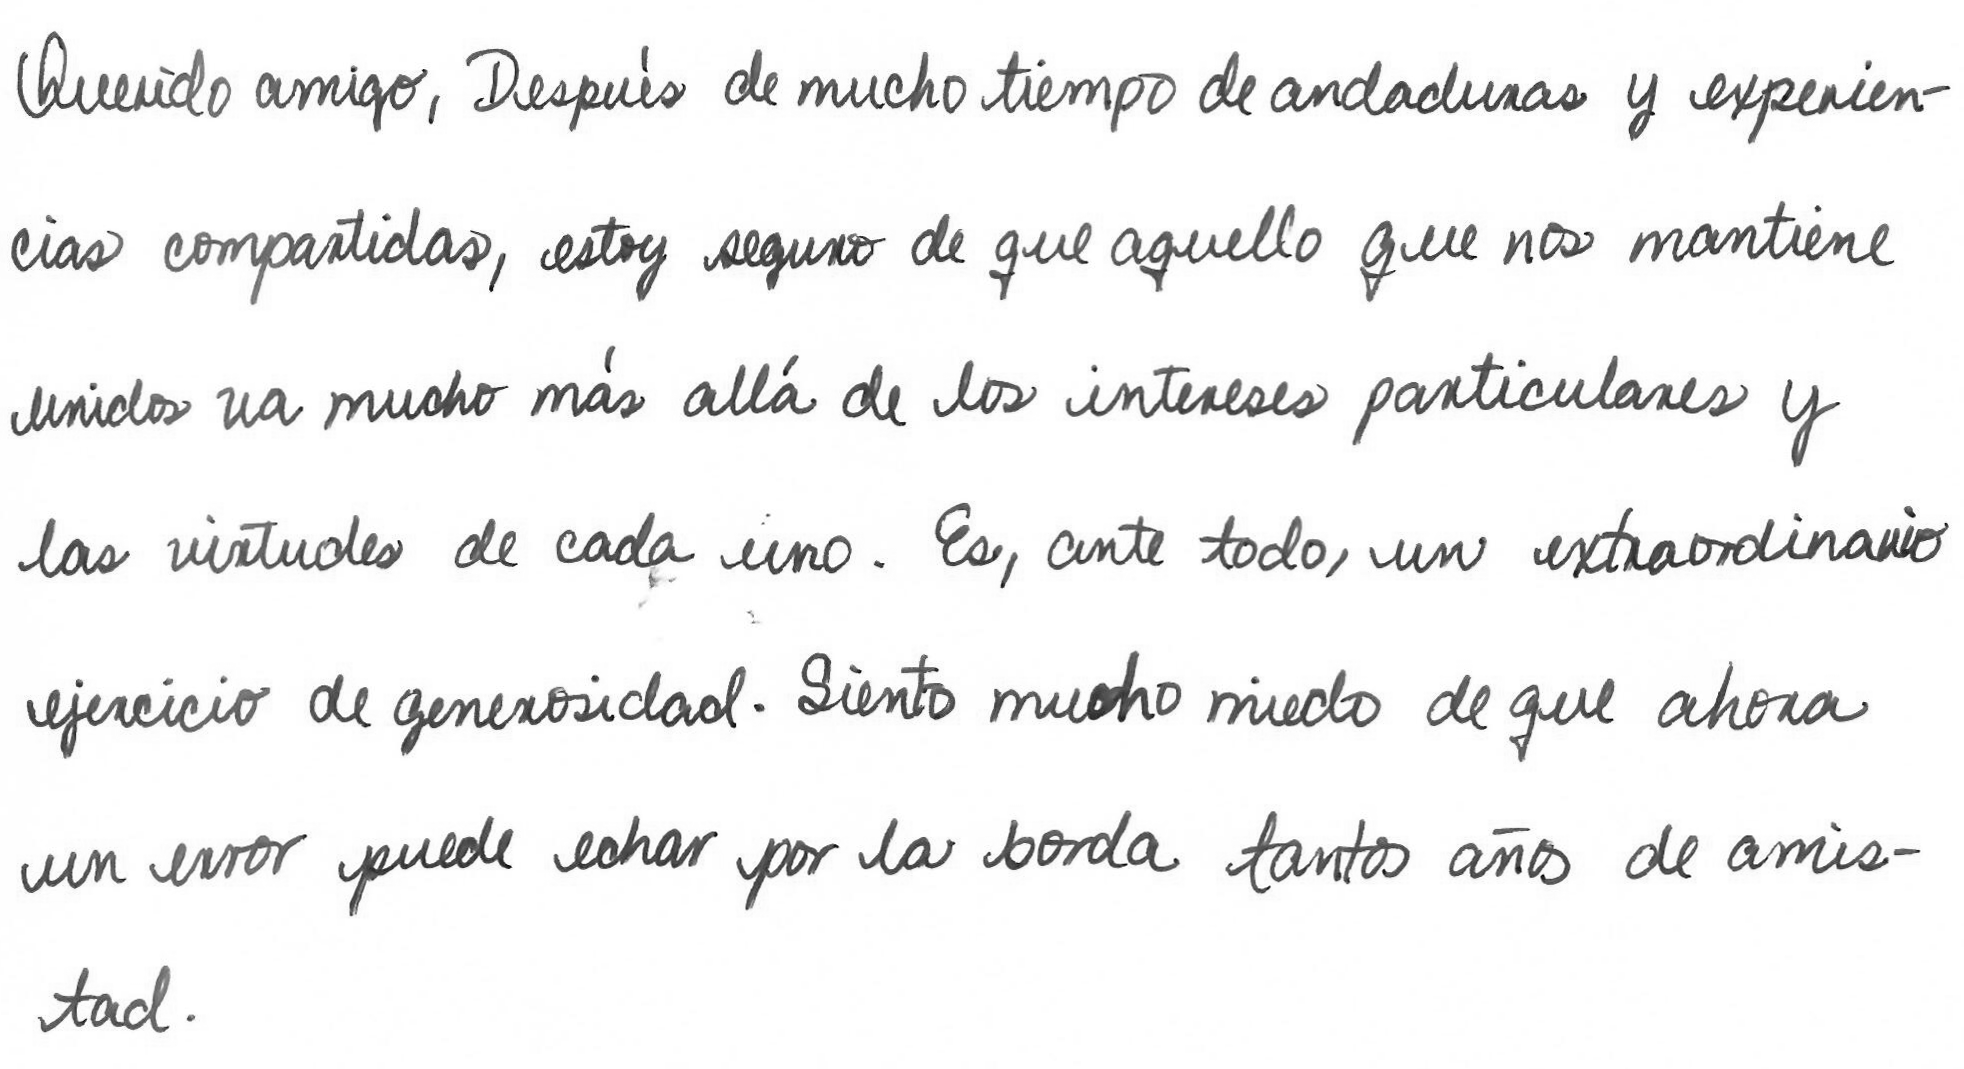 Querido amigo, Después de mucho tiempo de andaduras y experien-
cias compartidas, estoy seguro de que aquello que nos mantiene
unidos va mucho más allá de los intereses particulares y
las virtudes de cada uno. Es, ante todo, un extraordinario
ejercicio de generosidad. Siento mucho miedo de que ahora
un error puede echar por la borda tantos años de amis-
tad.